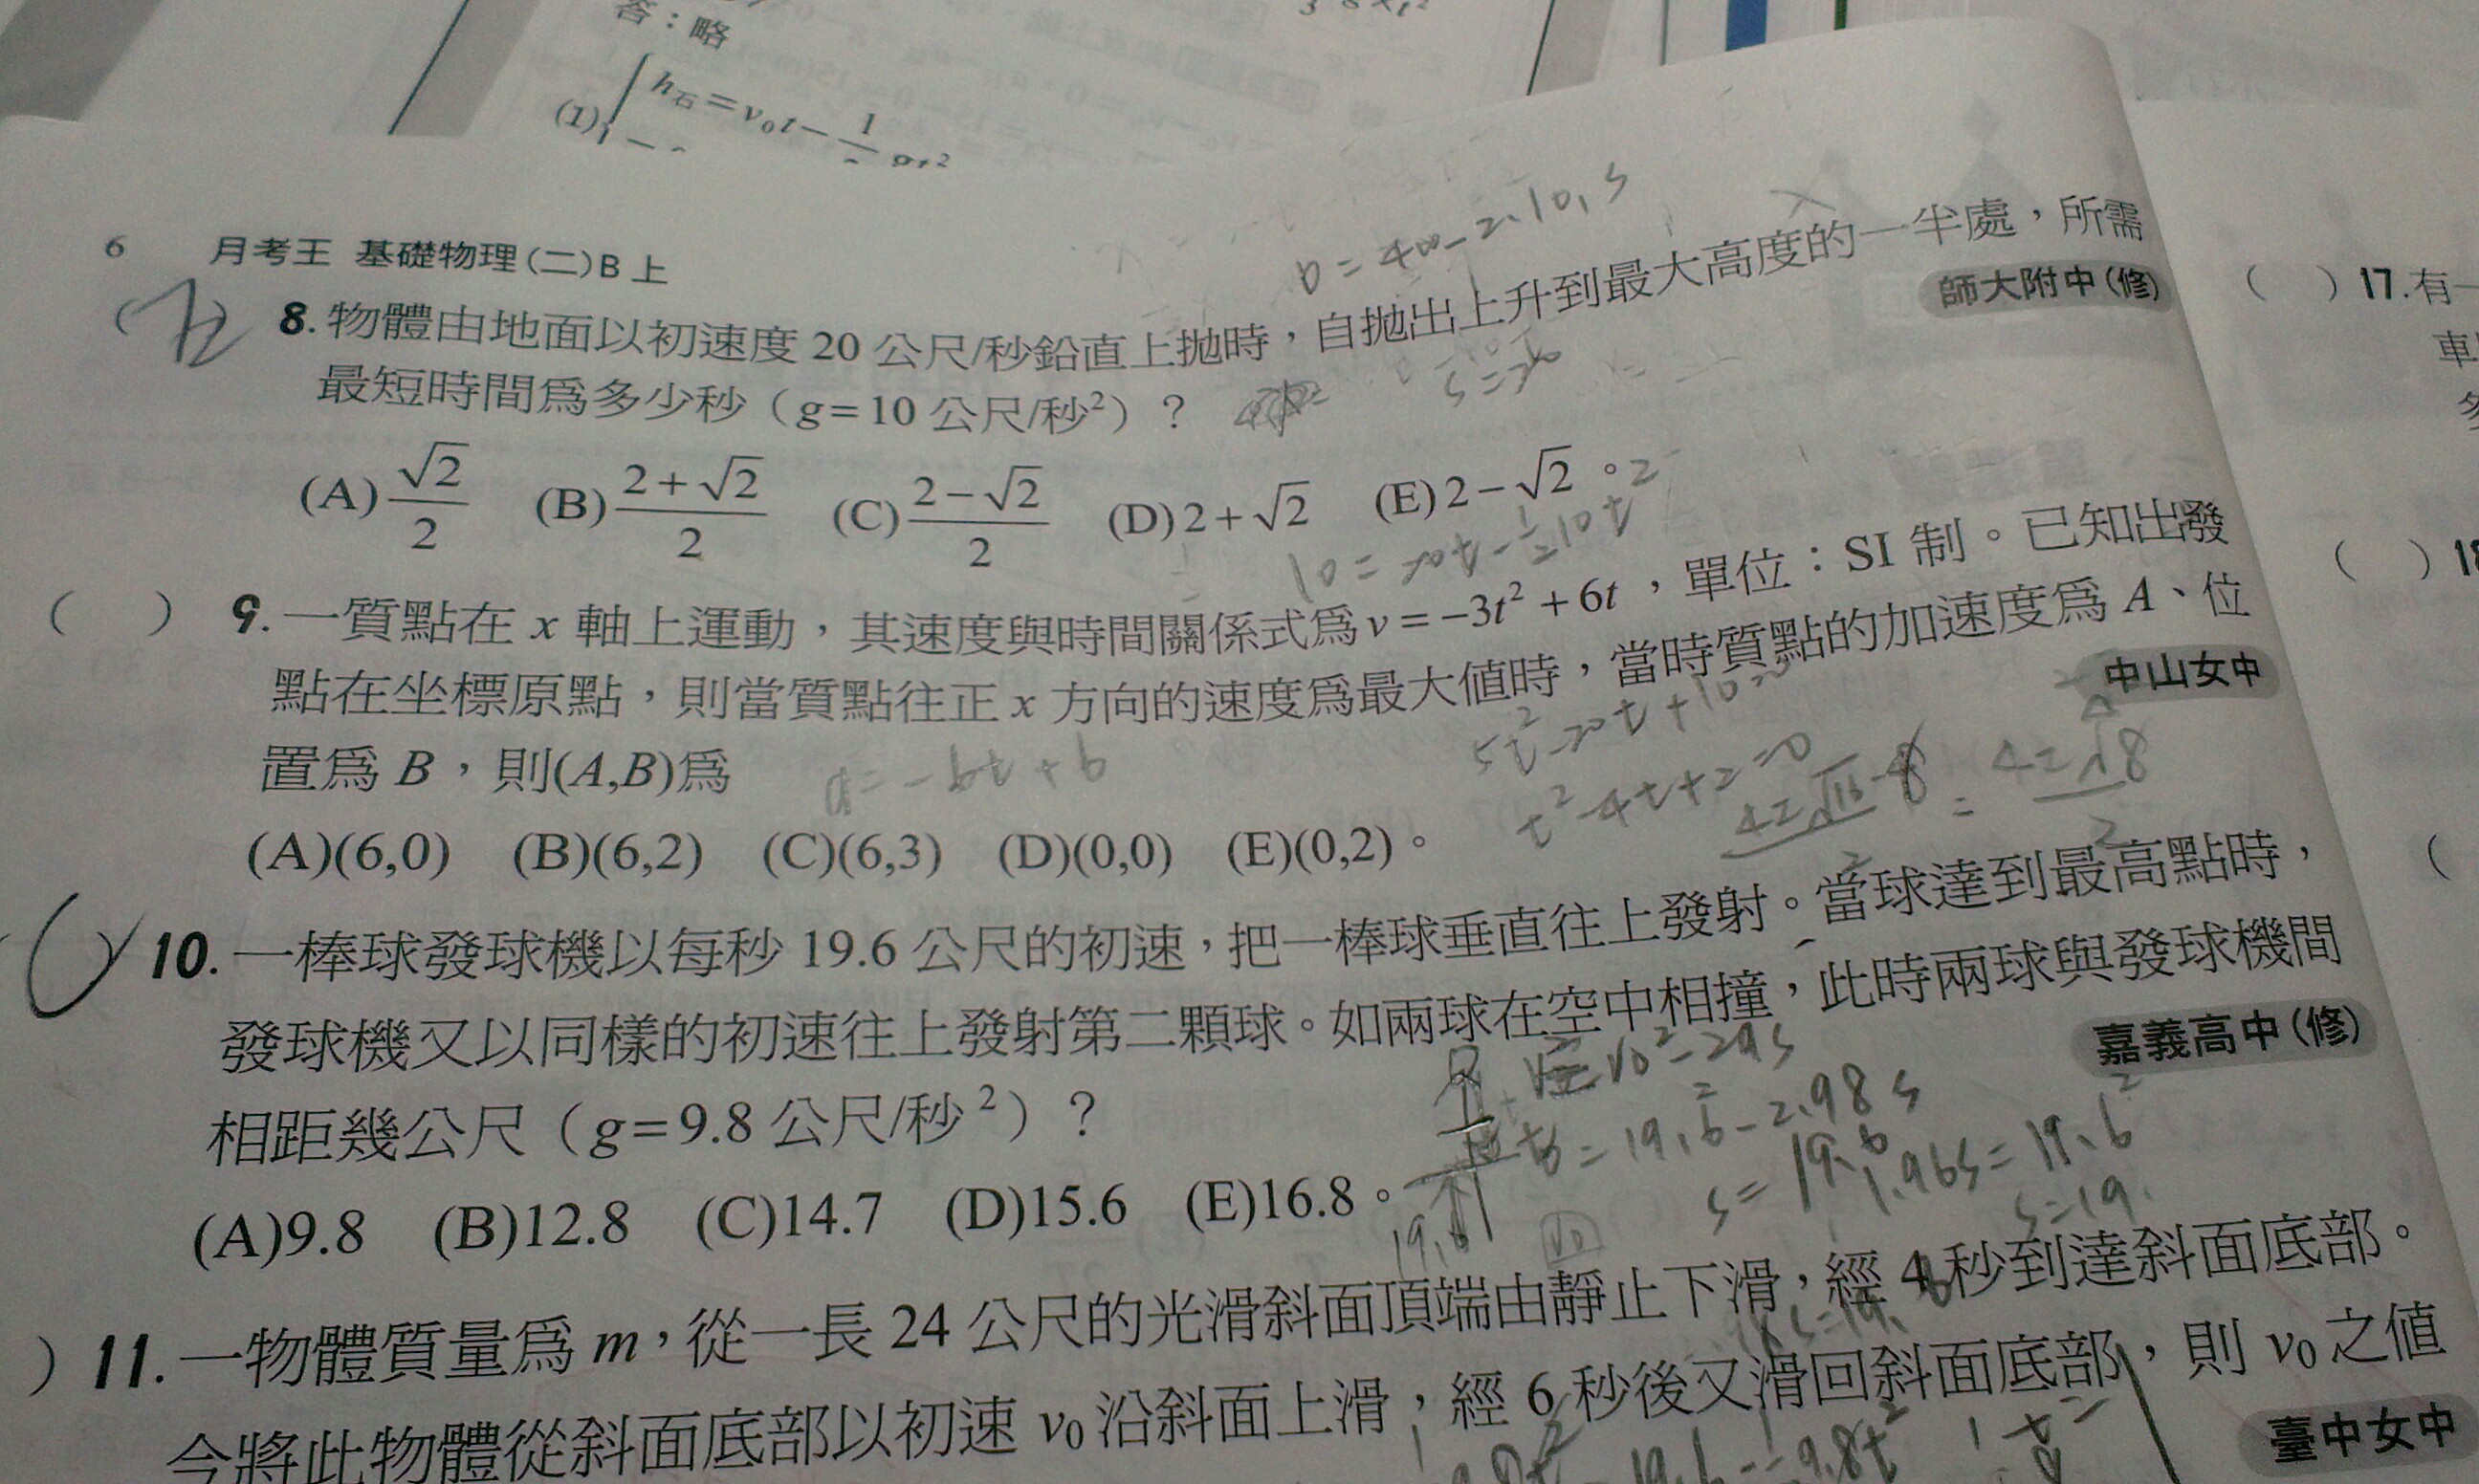 答：略
(1) h石=v₀t−1
6 月考王 基礎物理(二)B上
0=400-2.10.s
8. 物體由地面以初速度 20 公尺/秒鉛直上拋時，自拋出上升到最大高度的一半處，所需
師大附中(修)
最短時間爲多少秒（g=10 公尺/秒²）？
s=20
(A) √2/2 (B) (2+√2)/2 (C) (2−√2)/2 (D) 2+√2 (E) 2−√2 。
10=20t-½10t²
( ) 9. 一質點在 x 軸上運動，其速度與時間關係式爲 v=−3t²+6t，單位：SI 制。已知出發
點在坐標原點，則當質點往正 x 方向的速度爲最大值時，當時質點的加速度爲 A、位
中山女中
置爲 B，則(A,B)爲
a=-6t+6
5t²-20t+10=0
t²-4t+2=0
(A)(6,0) (B)(6,2) (C)(6,3) (D)(0,0) (E)(0,2)。
10. 一棒球發球機以每秒 19.6 公尺的初速，把一棒球垂直往上發射。當球達到最高點時，
發球機又以同樣的初速往上發射第二顆球。如兩球在空中相撞，此時兩球與發球機間
嘉義高中(修)
相距幾公尺（g=9.8 公尺/秒²）？
(A)9.8 (B)12.8 (C)14.7 (D)15.6 (E)16.8。
) 11. 一物體質量爲 m，從一長 24 公尺的光滑斜面頂端由靜止下滑，經 4 秒到達斜面底部。
今將此物體從斜面底部以初速 v₀ 沿斜面上滑，經 6 秒後又滑回斜面底部，則 v₀ 之值
臺中女中
( ) 17. 有一
車
( ) 18
(